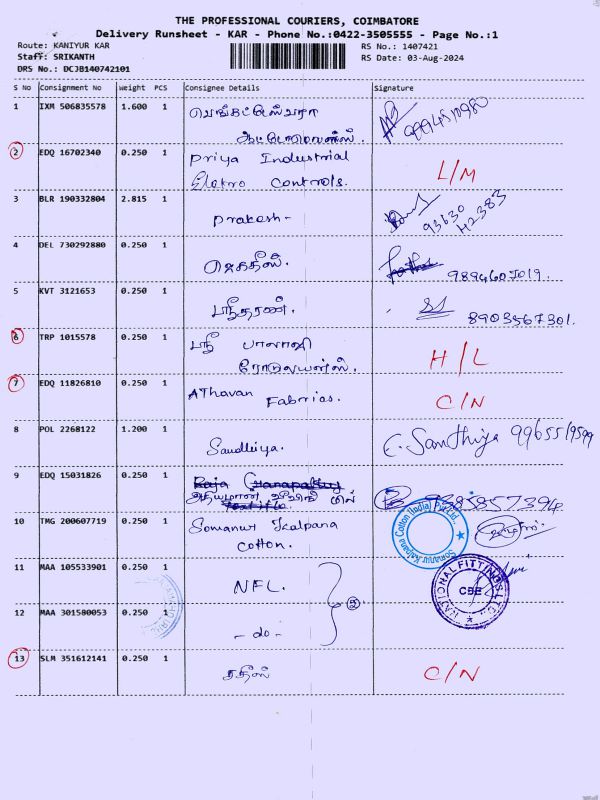 THE PROFESSIONAL COURIERS, COIMBATORE
Delivery Runsheet - KAR - Phone No.:0422-3505555 - Page No.:1
Route: KANIYUR KAR
RS No.: 1407421
Staff: SRIKANTH
RS Date: 03-Aug-2024
DRS No.: DCJB140742101
S No Consignment No Weight PCS Consignee Details Signature
1 IXM 506835578 1.600 1 வெங்கட்டேஸ்வரா
ஆட்டோமொபைல்ஸ்.
2 EDQ 16702340 0.250 1 Priya Industrial L/M
Eletro Controls.
3 BLR 190332804 2.815 1 Prakash-
93630
H2383
4 DEL 730292880 0.250 1 ஜெகதீஸ். 9894607019.
5 KVT 3121653 0.250 1 ஸ்ரீதரண். 8903567301.
6 TRP 1015578 0.250 1 ஸ்ரீ பாலாஜி H/L
7 EDQ 11826810 0.250 1 AThavan Fabrics. C/N
8 POL 2268122 1.200 1 Sandhiya. E. Santhiya
9 EDQ 15031826 0.250 1 9385857394
10 TMG 200607719 0.250 1 Somanur Kalpana
Cotton.
Somanur Kalpana Cotton (India) Pvt Ltd.
11 MAA 105533901 0.250 1 NFL.
NATIONAL FITTINGS LTD. CBE
12 MAA 301580053 0.250 1 - do - 2
13 SLM 351612141 0.250 1 சதீஸ் C/N